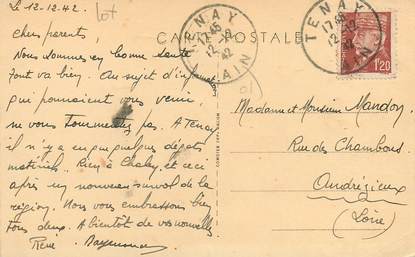 Le 12-12-42
lot
Chers parents,
Nous sommes en bonne santé
Tout va bien. Au sujet d'informations
qui pourraient vous venir,
ne vous tourmentez pas. A Tenay
il n'y a eu que quelques dégâts
matériels. Rien à Chaley, et ceci
après un nouveau survol de la
région. Nous vous embrassons bien
tous deux. A bientôt de vos nouvelles
René
CARTE POSTALE
TENAY
17 45
12-12
42
AIN
TENAY
17 45
12-12
42
AIN
1'20
Madame et Monsieur Mandon
Rue des Chambons
Andrézieux
(Loire)